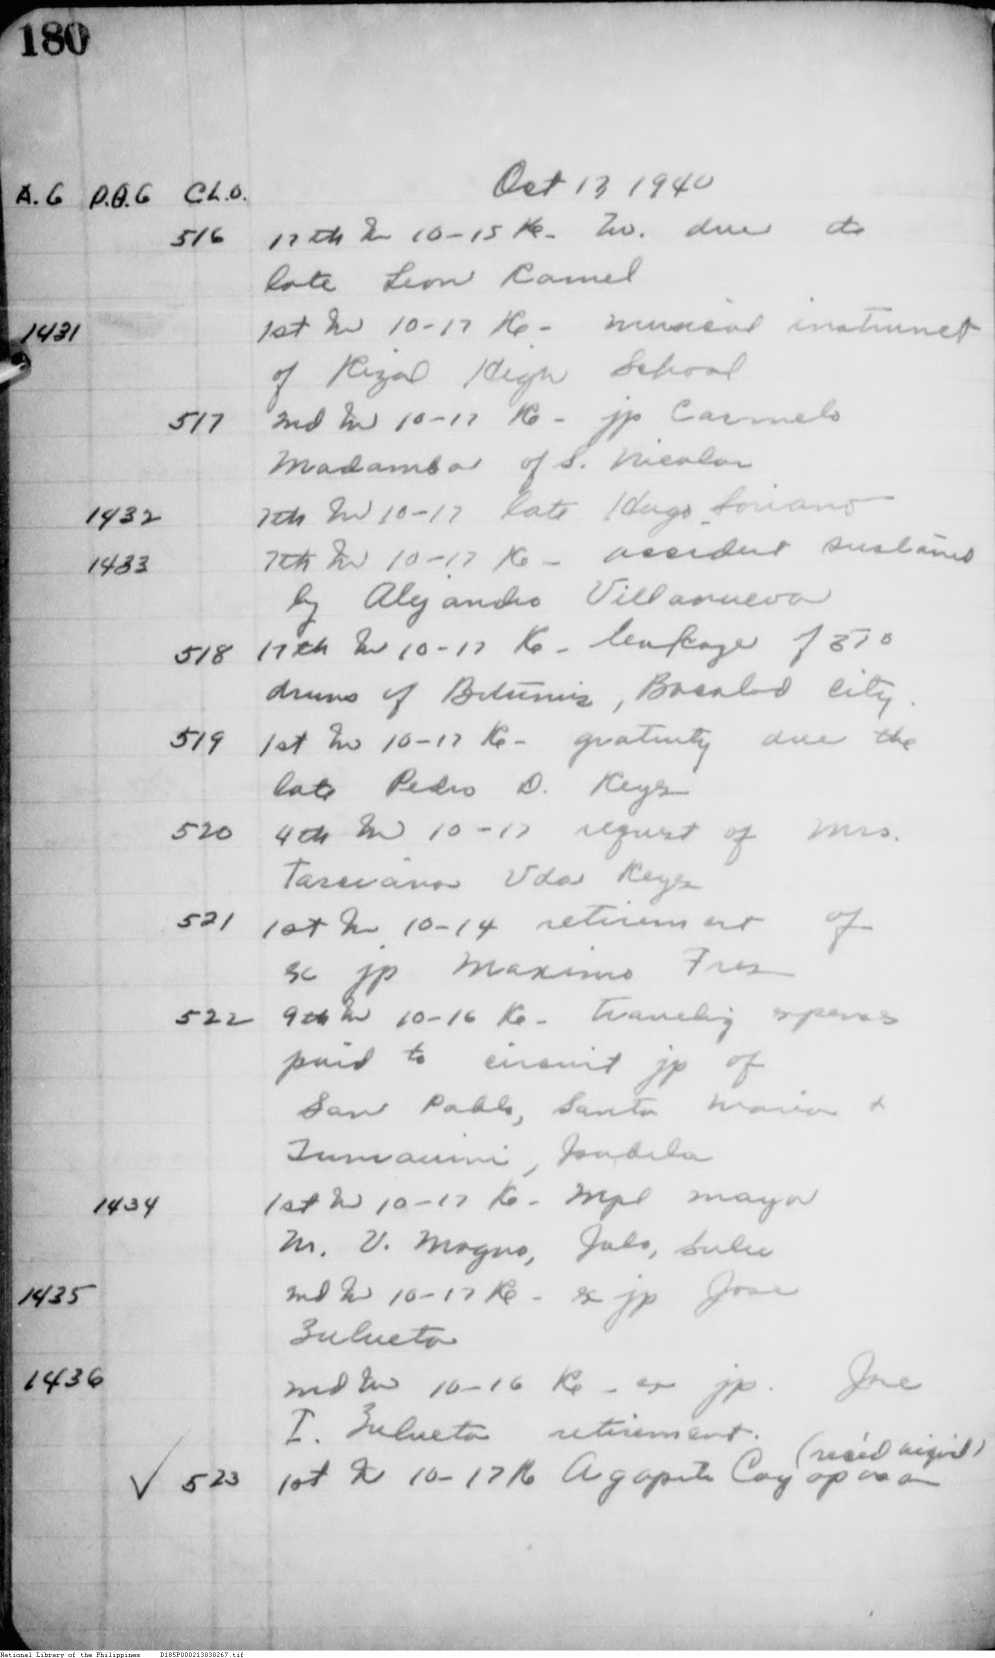 180
A.G P.A.G C.L.O. Oct 17, 1940
516 17th In 10-15 Re- due to
late Leon Ramel
1431 1st In 10-17 Re- musical instrumet
of Rizal High School
517 2nd In 10-17 Re- jp Carmelo
Madamba of S. Nicolas
1432 7th In 10-17 late Hugo Soriano
1433 7th In 10-17 Re- accident sustained
by Alejandro Villanueva
518 17th In 10-17 Re- leakage of 370
drums of Bitumis, Bacolod City.
519 1st In 10-17 Re- gratuity due the
late Pedro D. Reyes
520 4th In 10-17 request of Mrs.
Tarciana Vda Reyes
521 1st In 10-14 retirement of
ex jp Maximo
522 9th In 10-16 Re- traveling expenses
paid to circuit jp of
San Pablo, Santa Maria &
Tumauini, Isabela
1434 1st In 10-17 Re- Mpl mayor
M. V. Magno, Jolo, Sulu
1435 2nd In 10-17 Re- ex jp Jose
Zulueta
1436 2nd In 10-16 Re- ex jp. Jose
I. Zulueta retirement.
(rec'd
✓ 523 1st In 10-17 Re Agapito
National Library of the Philippines D185P000213830267.tif